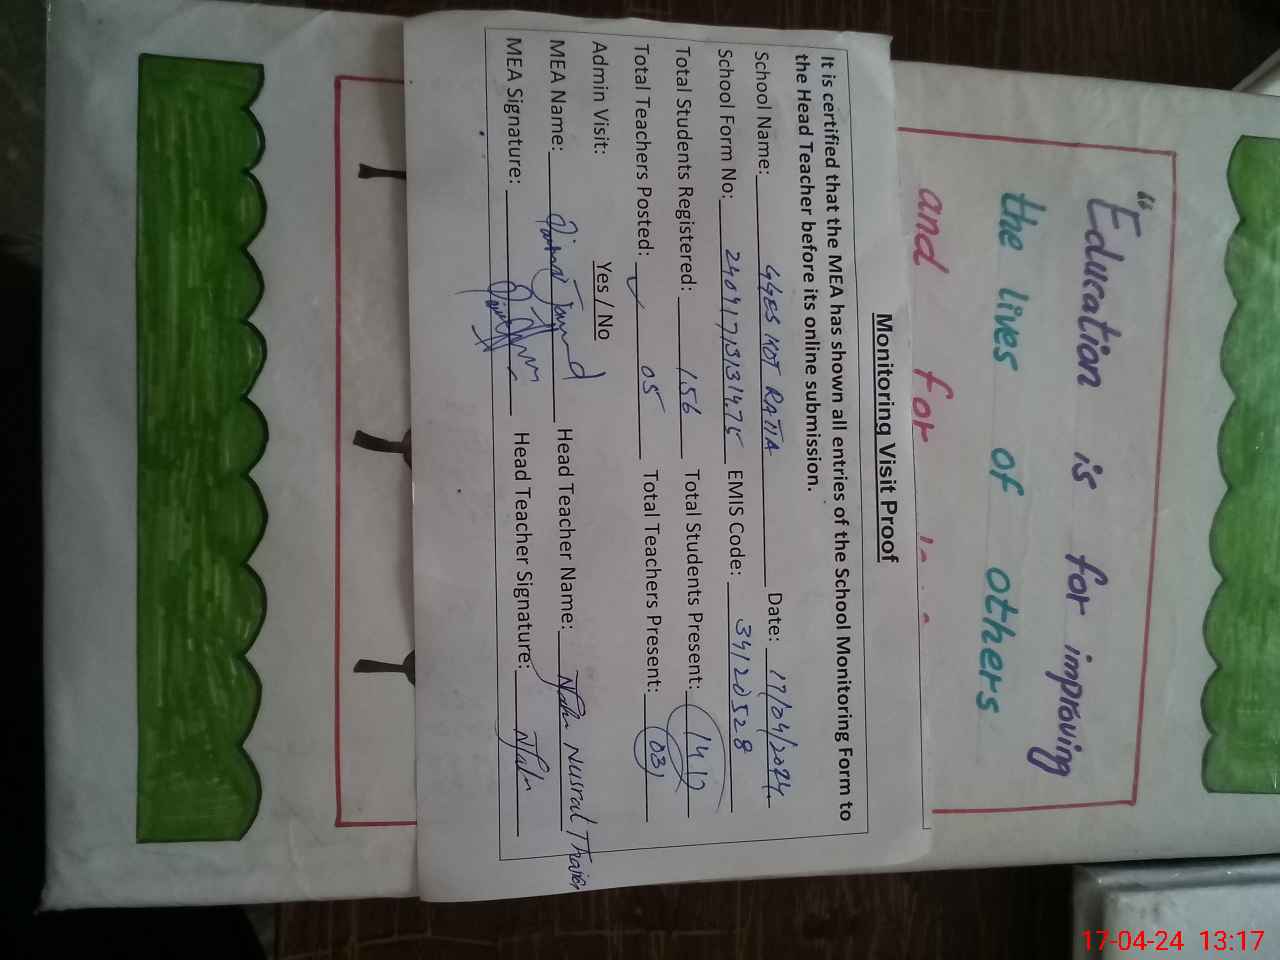 Monitoring Visit Proof
It is certified that the MEA has shown all entries of the School Monitoring Form to
the Head Teacher before its online submission.
School Name: GGES KOT RATTA Date: 17/04/2024
School Form No: EMIS Code: 34120528
Total Students Registered: 156 Total Students Present:
Total Teachers Posted: 05 Total Teachers Present: 03
Admin Visit: Yes / No
MEA Name: Head Teacher Name: Nusrat
MEA Signature: Head Teacher Signature:
"Education is for improving
the lives of others
and for
17-04-24 13:17